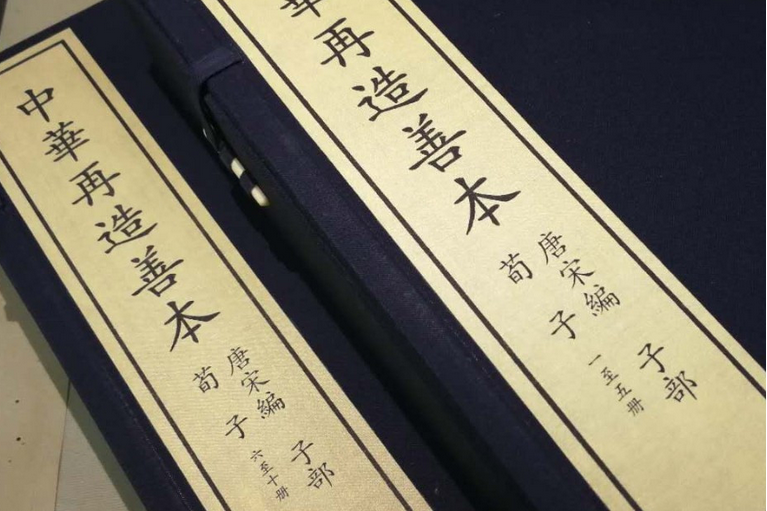 中華再造善本
唐宋編 子部
荀子 六至十册
華再造善本
唐宋編 子部
荀子 一至五册